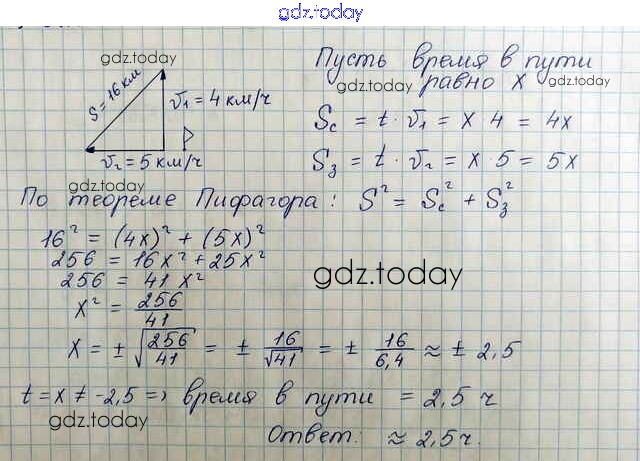 gdz.today
gdz.today
S = 16 км
v₁ = 4 км/ч
v₂ = 5 км/ч
gdz.today
Пусть время в пути
равно x
gdz.today
gdz.today
Sс = t · v₁ = x · 4 = 4x
Sз = t · v₂ = x · 5 = 5x
По теореме Пифагора: S² = Sс² + Sз²
16² = (4x)² + (5x)²
256 = 16x² + 25x²
256 = 41 x²
x² = 256/41
gdz.today
x = ± √(256/41) = ± 16/√41 = ± 16/6,4 ≈ ± 2,5
t = x ≠ -2,5 => время в пути = 2,5 ч
gdz.today
Ответ: ≈ 2,5ч.